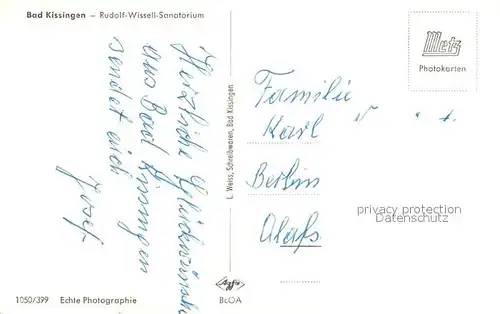 Bad Kissingen – Rudolf-Wissell-Sanatorium
Herzliche Glückwünsche
aus Bad Kissingen
sendet euch
Josef
L. Weiss, Schreibwaren, Bad Kissingen
Metz
Photokarten
Familie
Karl
Berlin
privacy protection
Datenschutz
1050/399 Echte Photographie
Agfa
BcOA